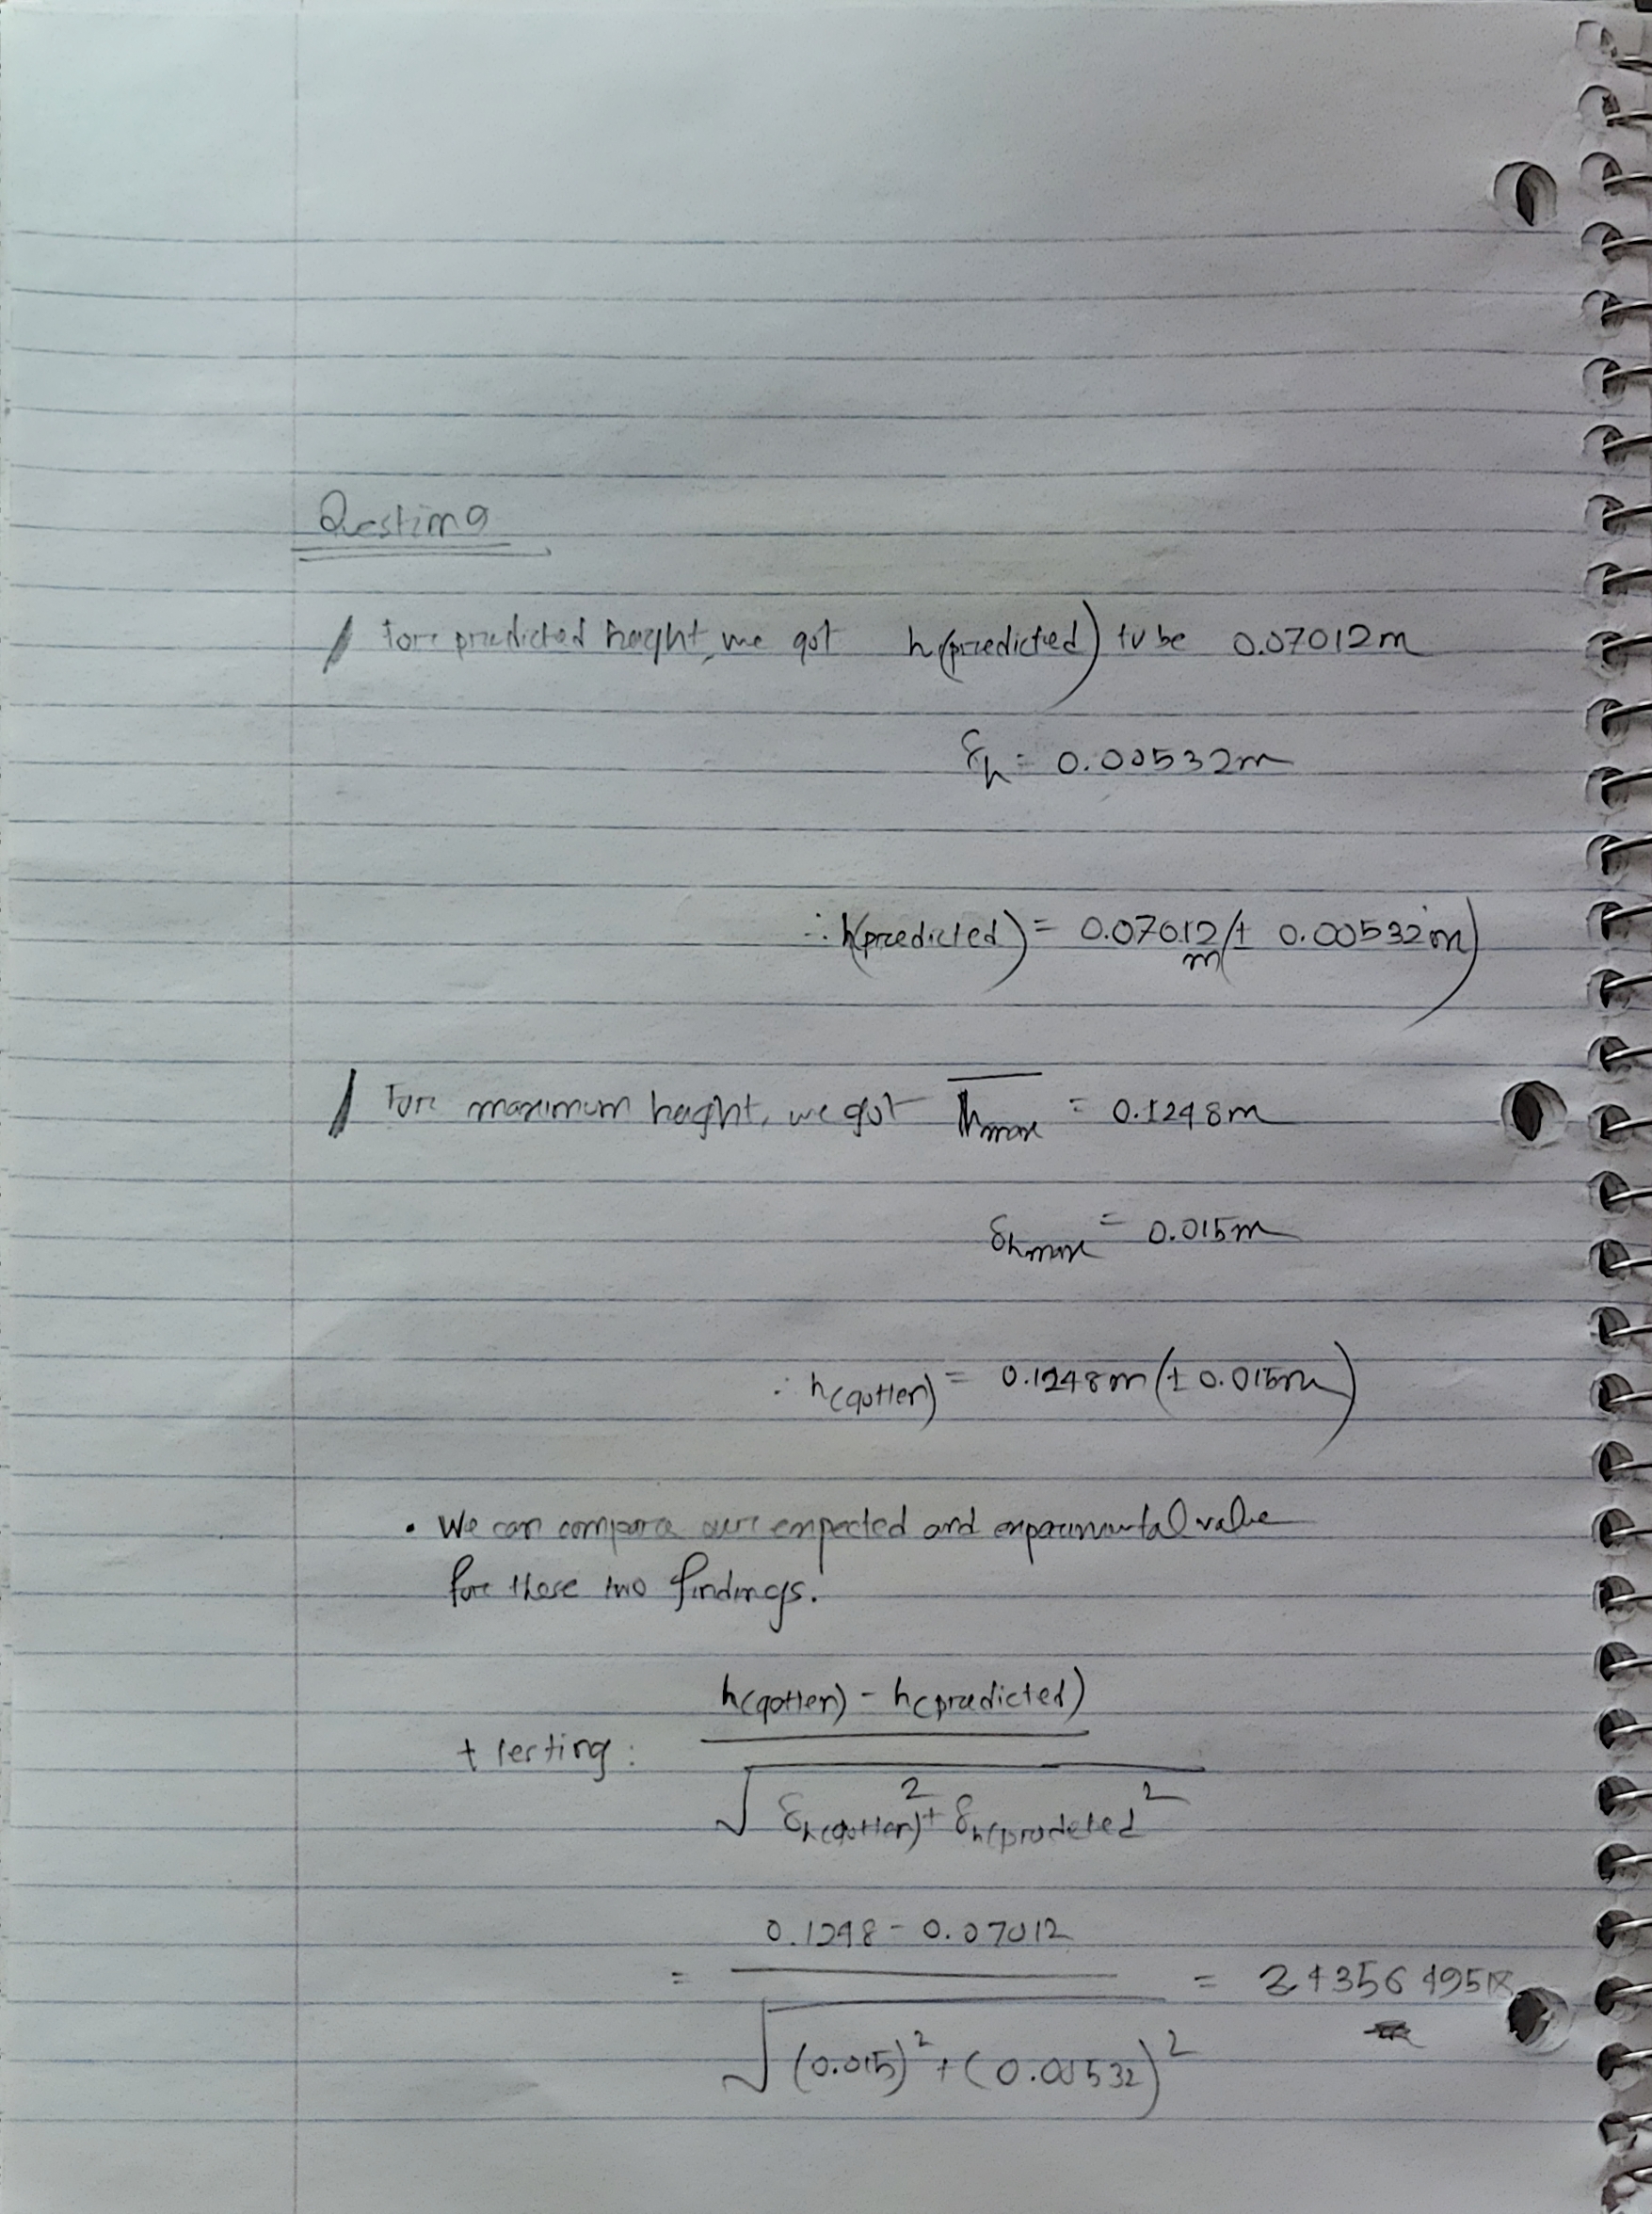 Question 9
For predicted height, we got h(predicted) to be 0.07012m
δh = 0.00532m
∴ h(predicted) = 0.07012 m (± 0.00532m)
For maximum height, we got hmax = 0.1248m
δhmax = 0.015m
∴ h(gotten) = 0.1248m (± 0.015m)
• We can compare our expected and experimental value
for these two findings.
t testing: h(gotten) - h(predicted)
√ δh(gotten)² + δh(predicted²
= 0.1248 - 0.07012
√ (0.015)² + (0.00532)²